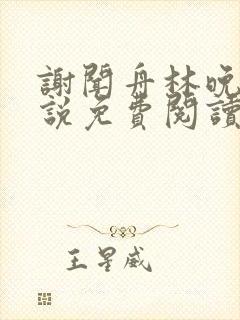 謝聞舟林晚
說免費閱讀
王星威